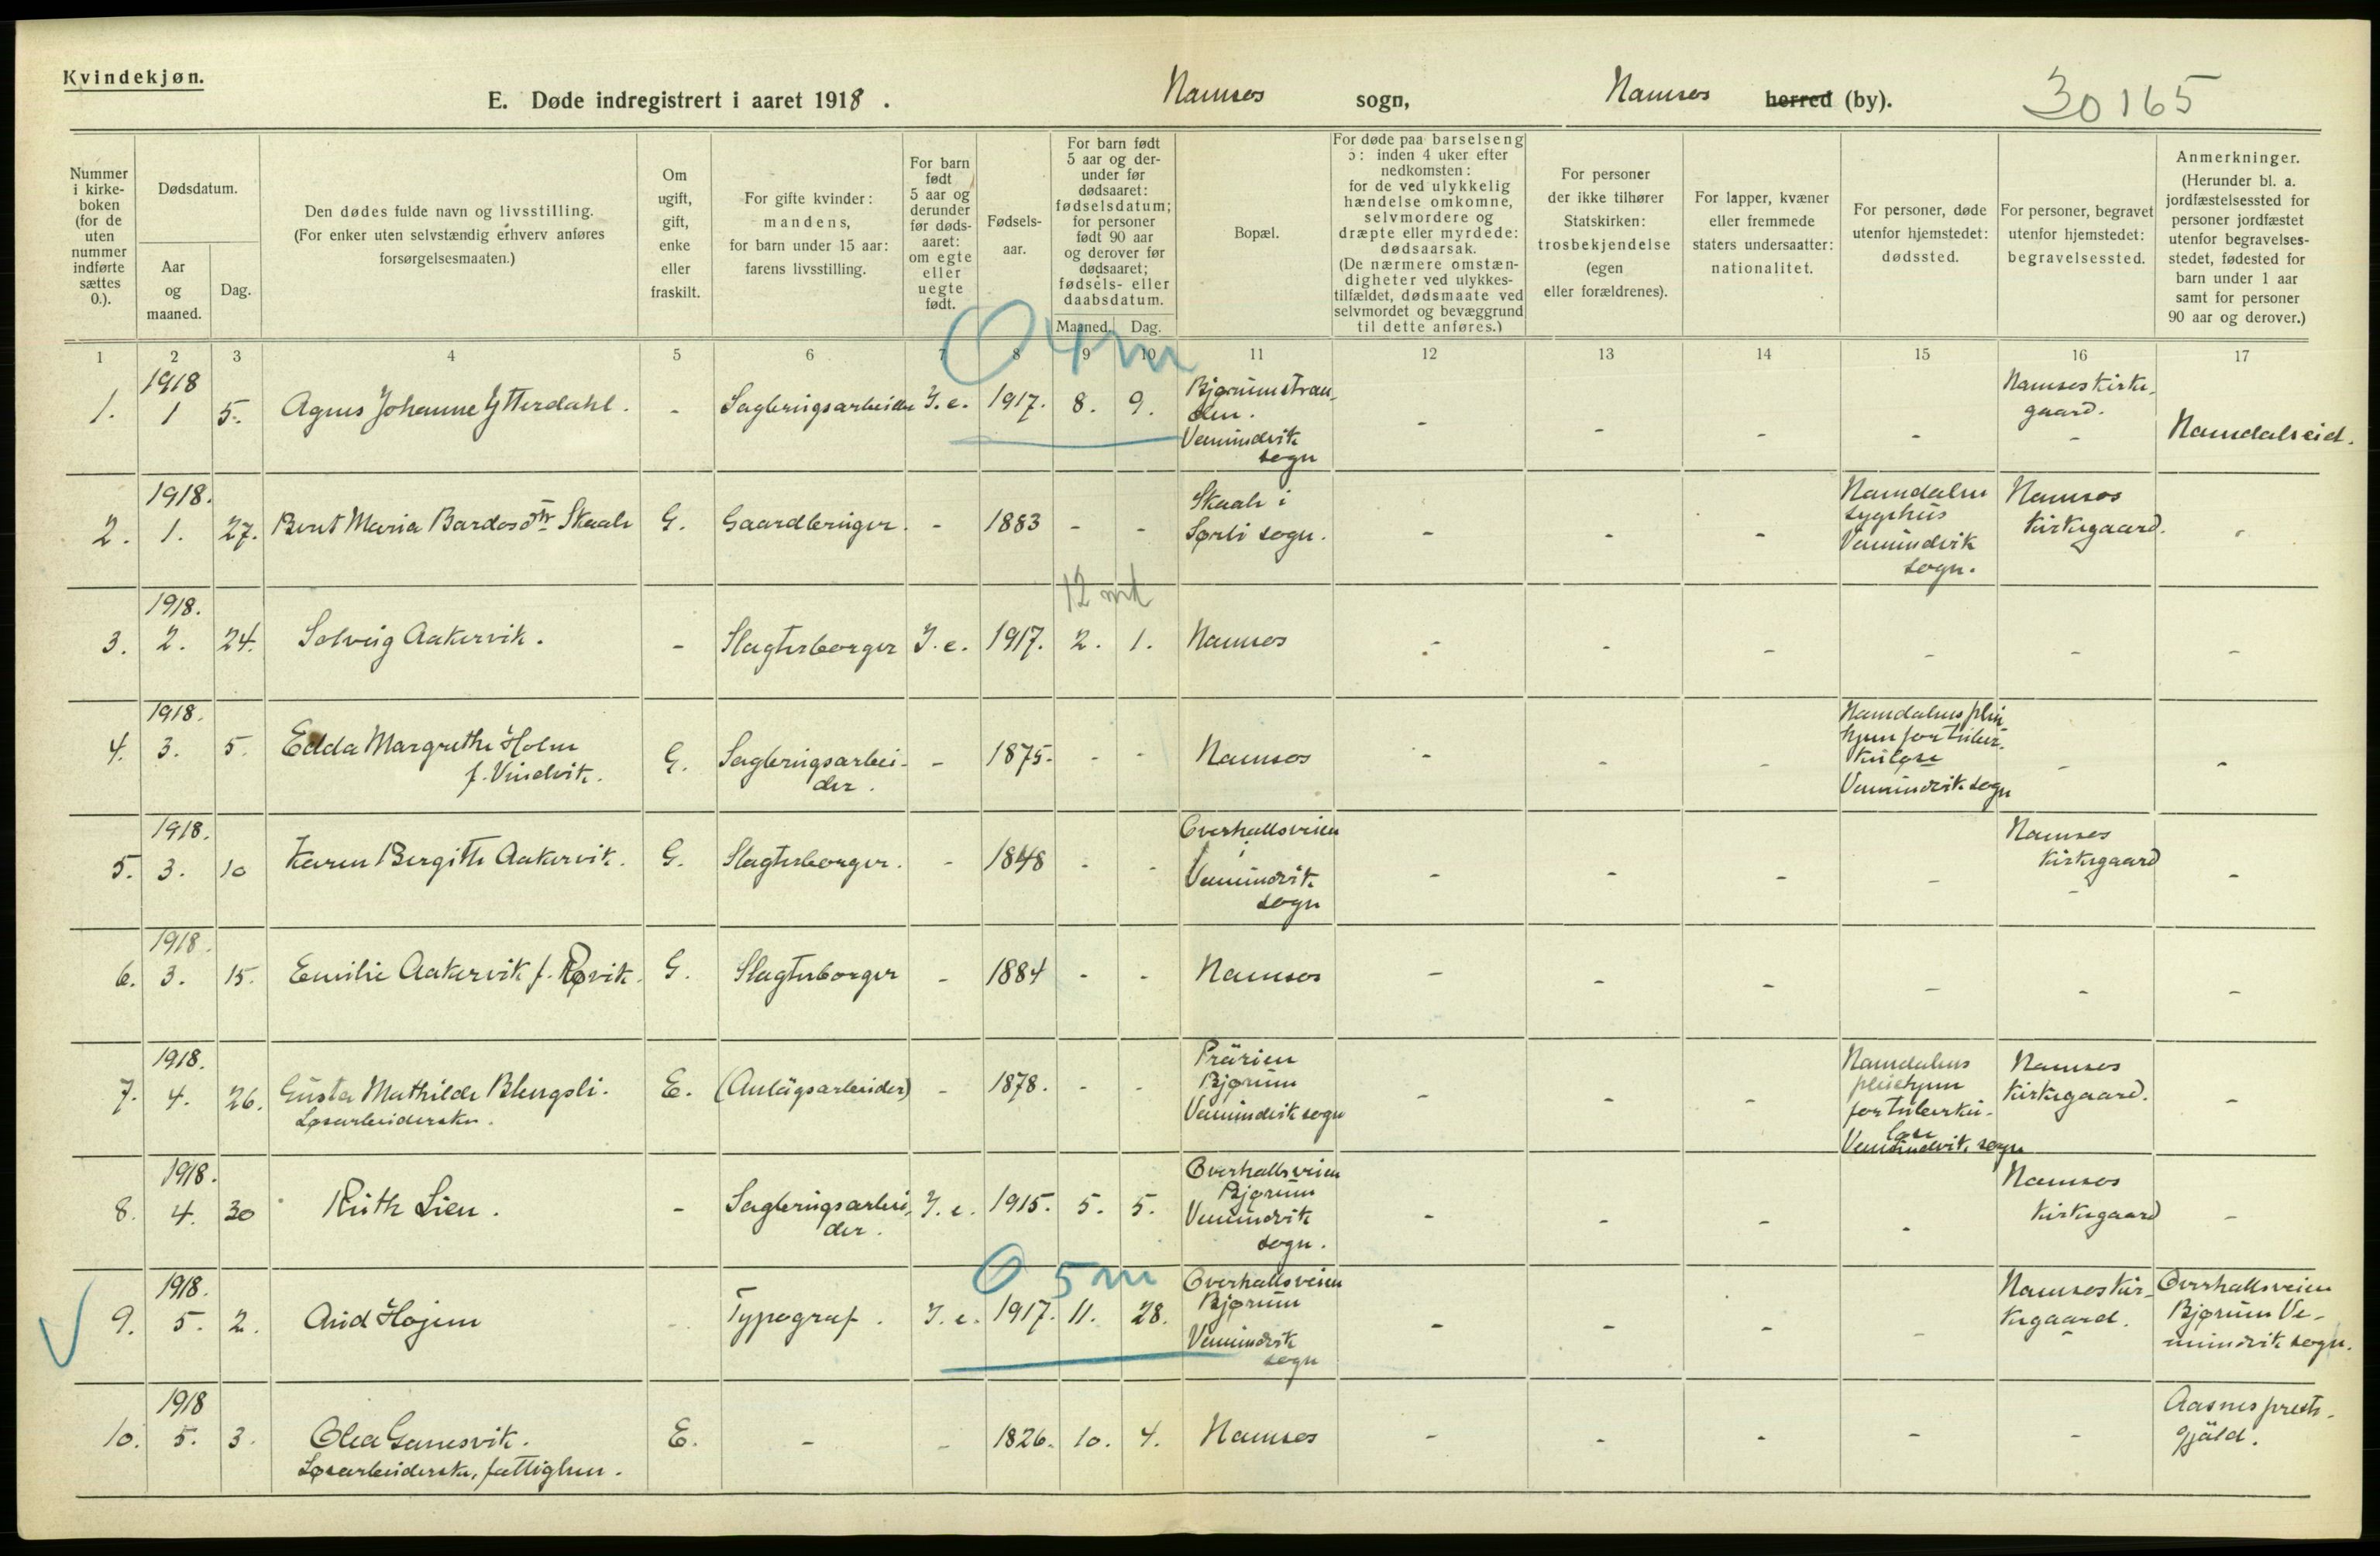 Kvindekjøn.
E. Døde indregistrert i aaret 1918. Namsos sogn, Namsos herred (by). 30165
Nummer i kirkeboken (for de uten nummer indførte sættes 0.).
Dødsdatum.
Aar og maaned.
Dag.
Den dødes fulde navn og livsstilling.
(For enker uten selvstændig erhverv anføres forsørgelsesmaaten.)
Om ugift, gift, enke eller fraskilt.
For gifte kvinder: mandens, for barn under 15 aar: farens livsstilling.
For barn født 5 aar og derunder før dødsaaret: om egte eller uegte født.
Fødselsaar.
For barn født 5 aar og derunder før dødsaaret: fødselsdatum; for personer født 90 aar og derover før dødsaaret; fødsels- eller daabsdatum.
Maaned. Dag.
Bopæl.
For døde paa barselseng ɔ: inden 4 uker efter nedkomsten: for de ved ulykkelig hændelse omkomne, selvmordere og dræpte eller myrdede: dødsaarsak. (De nærmere omstændigheter ved ulykkestilfældet, dødsmaate ved selvmordet og bevæggrund til dette anføres.)
For personer der ikke tilhører Statskirken: trosbekjendelse (egen eller forældrenes).
For lapper, kvæner eller fremmede staters undersaatter: nationalitet.
For personer, døde utenfor hjemstedet: dødssted.
For personer, begravet utenfor hjemstedet: begravelsessted.
Anmerkninger. (Herunder bl. a. jordfæstelsessted for personer jordfæstet utenfor begravelsesstedet, fødested for barn under 1 aar samt for personer 90 aar og derover.)
1 2 3 4 5 6 7 8 9 10 11 12 13 14 15 16 17
0 4 m
1. 1918 1 5. Agnes Johanne Ytterdahl. - Sagbrugsarbeider I. e. 1917. 8. 9. Bjørumstranden. Vemundvik sogn - - - - Namsos kirkegaard. - Namdalseid.
2. 1918. 1. 27. Beret Maria Bardosdtr Skaale G. Gaardbruger. - 1883 - - Skaale i Sørli sogn. - - - Namdalens sygehus Vemundvik sogn. Namsos kirkegaard. -
12 md
3. 1918. 2. 24. Solveig Aakervik. - Slagterborger I. e. 1917. 2. 1. Namsos - - - - - -
4. 1918. 3. 5. Edda Margrethe Holm f. Vindvik. G. Sagbrugsarbeider. - 1875. - - Namsos - - - Namdalens pleiehjem for tuberkuløse Vemundvik sogn - -
5. 1918. 3. 10 Karen Bergitte Aakervik. G. Slagterborger. - 1848 - - Overhallsveien i Vemundvik sogn - - - - Namsos kirkegaard - -
6. 1918. 3. 15. Emilie Aakervik f. Røvik. G. Slagterborger - 1884 - - Namsos - - - - - -
7. 1918. 4. 26. Gusta Mathilde Blengsli. Løsarbeiderske. E. (Anlægsarbeider) - 1878. - - Prärien Bjørum Vemundvik sogn - - - Namdalens pleiehjem for tuberkuløse Vemundvik sogn Namsos kirkegaard. -
8. 1918. 4. 30 Ruth Lien. - Sagbrugsarbeider. I. e. 1915. 5. 5. Overhallsveien Bjørum Vemundvik sogn. - - - - Namsos kirkegaard -
0 5 m
9. 1918. 5. 2. Aud Højem - Typograf. I. e. 1917. 11. 28. Overhallsveien Bjørum Vemundvik sogn - - - - Namsos kirkegaard. - Overhallsveien Bjørum Vemundvik sogn.
10. 1918 5. 3. Olea Gansvik. Løsarbeiderske, fattiglem. E. - - 1826. 10. 4. Namsos - - - - - Aasnes prestegjäld.